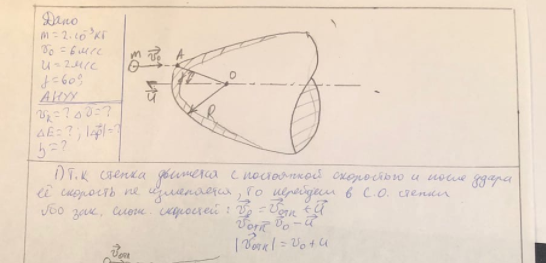 Дано
m = 2·10⁻³ кг
v₀ = 6 м/с
u = 2 м/с
f = 60°
АНУУ
v_x = ? Δv = ?
ΔE = ? ; |Δp| = ?
h = ?
m v₀ A
O
u R
1) Т.к стенка движется с постоянной скоростью и после удара
её скорость не изменяется, то перейдём в С.О. стенки
По зак. слож. скоростей: v₀ = v отн + u
v отн = v₀ - u
|v отн| = v₀ + u
v отн